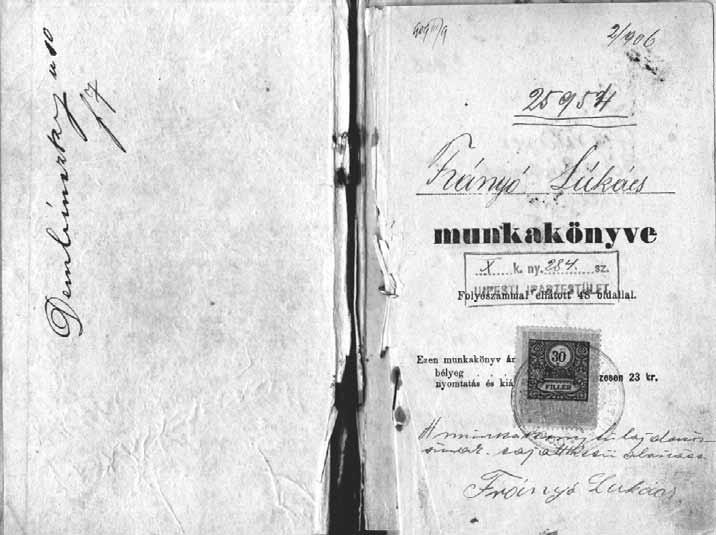 Dembinszky u 50
f 7
2/906
25954
Frányó Lúkács
munkakönyve
X k. ny. 284. sz.
UJPESTI IPARTESTÜLET
Folyószámmal ellátott 48 oldallal.
Ezen munkakönyv ár
bélyeg
nyomtatás és kiá zesen 23 kr.
30
FILLÉR
A munkakönyv tulajdonos
sajátkezű aláírása
Frányó Lukács